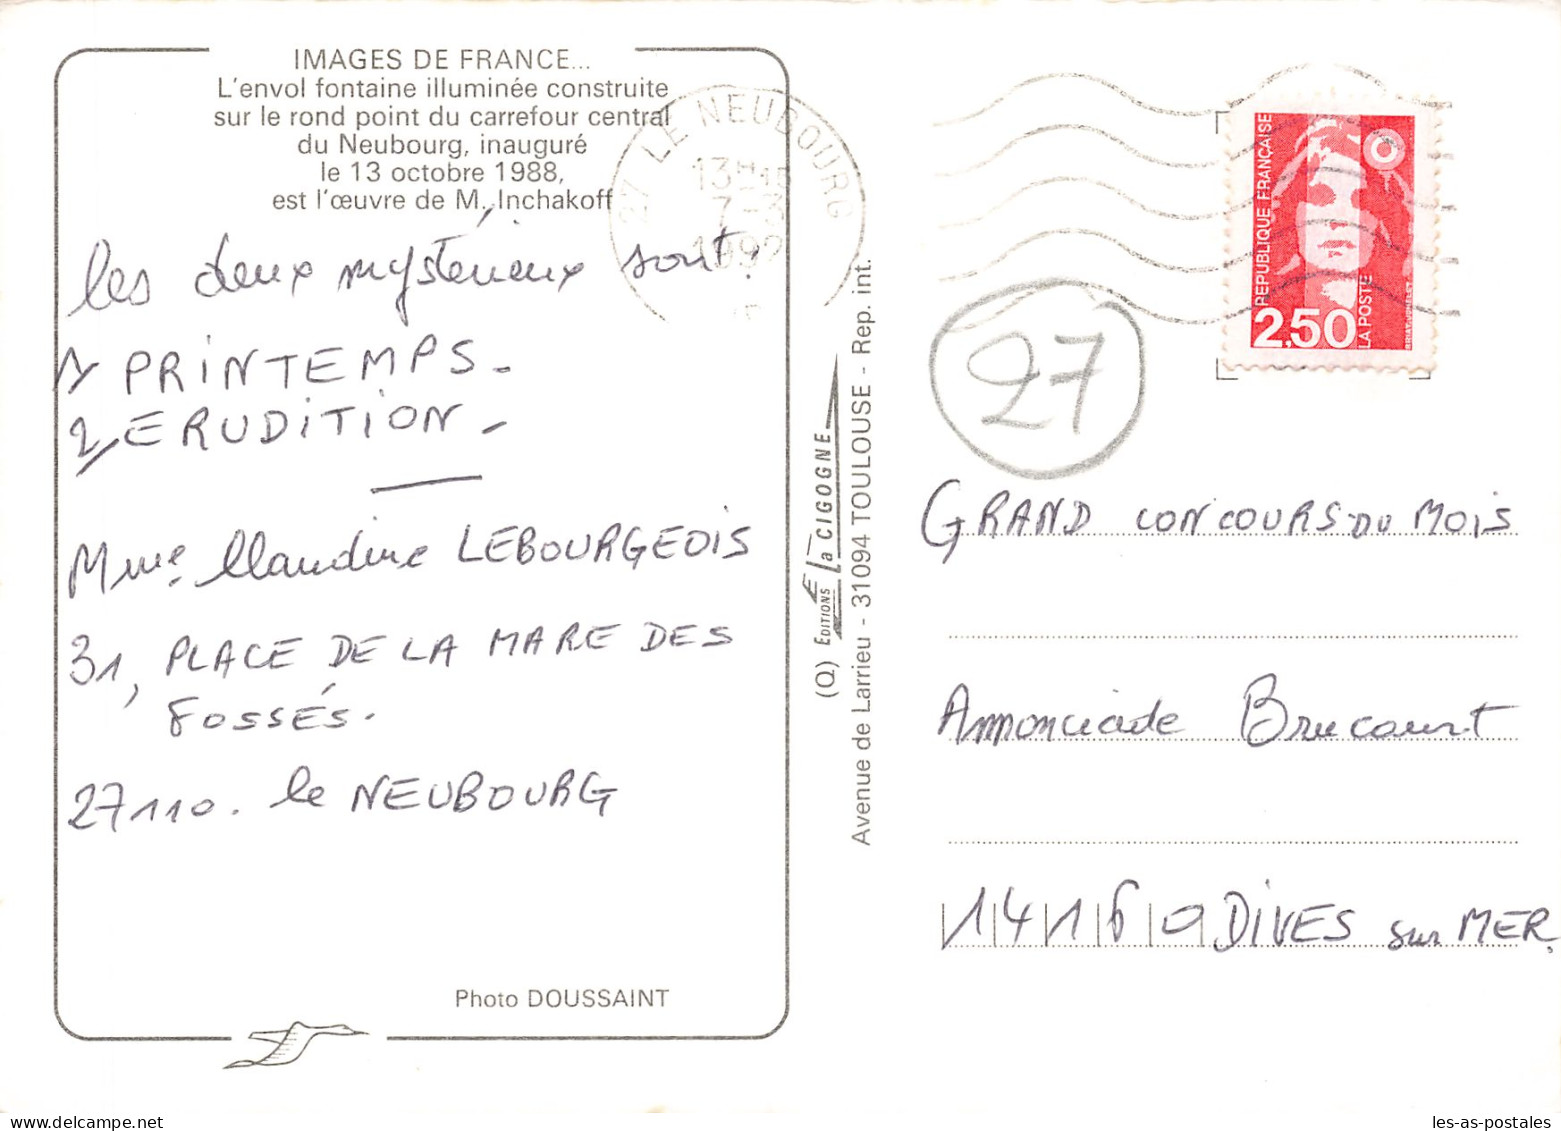 IMAGES DE FRANCE...
L'envol fontaine illuminée construite
sur le rond point du carrefour central
du Neubourg, inauguré
le 13 octobre 1988,
est l'œuvre de M. Inchakoff
les deux mystérieux sont:
1/ PRINTEMPS.
2/ ERUDITION.
Mme. Claudine LEBOURGEOIS
31, PLACE DE LA MARE DES
FOSSÉS.
27110. le NEUBOURG
Photo DOUSSAINT
27 LE NEUBOURG
13H15
7-3
1992
(Q) EDITIONS La CIGOGNE
Avenue de Larrieu - 31094 TOULOUSE - Rep. int.
REPUBLIQUE FRANÇAISE
2,50
LA POSTE
27
GRAND CONCOURS DU MOIS
Annonciade Brucourt
14160 DIVES sur MER.
les-as-postales